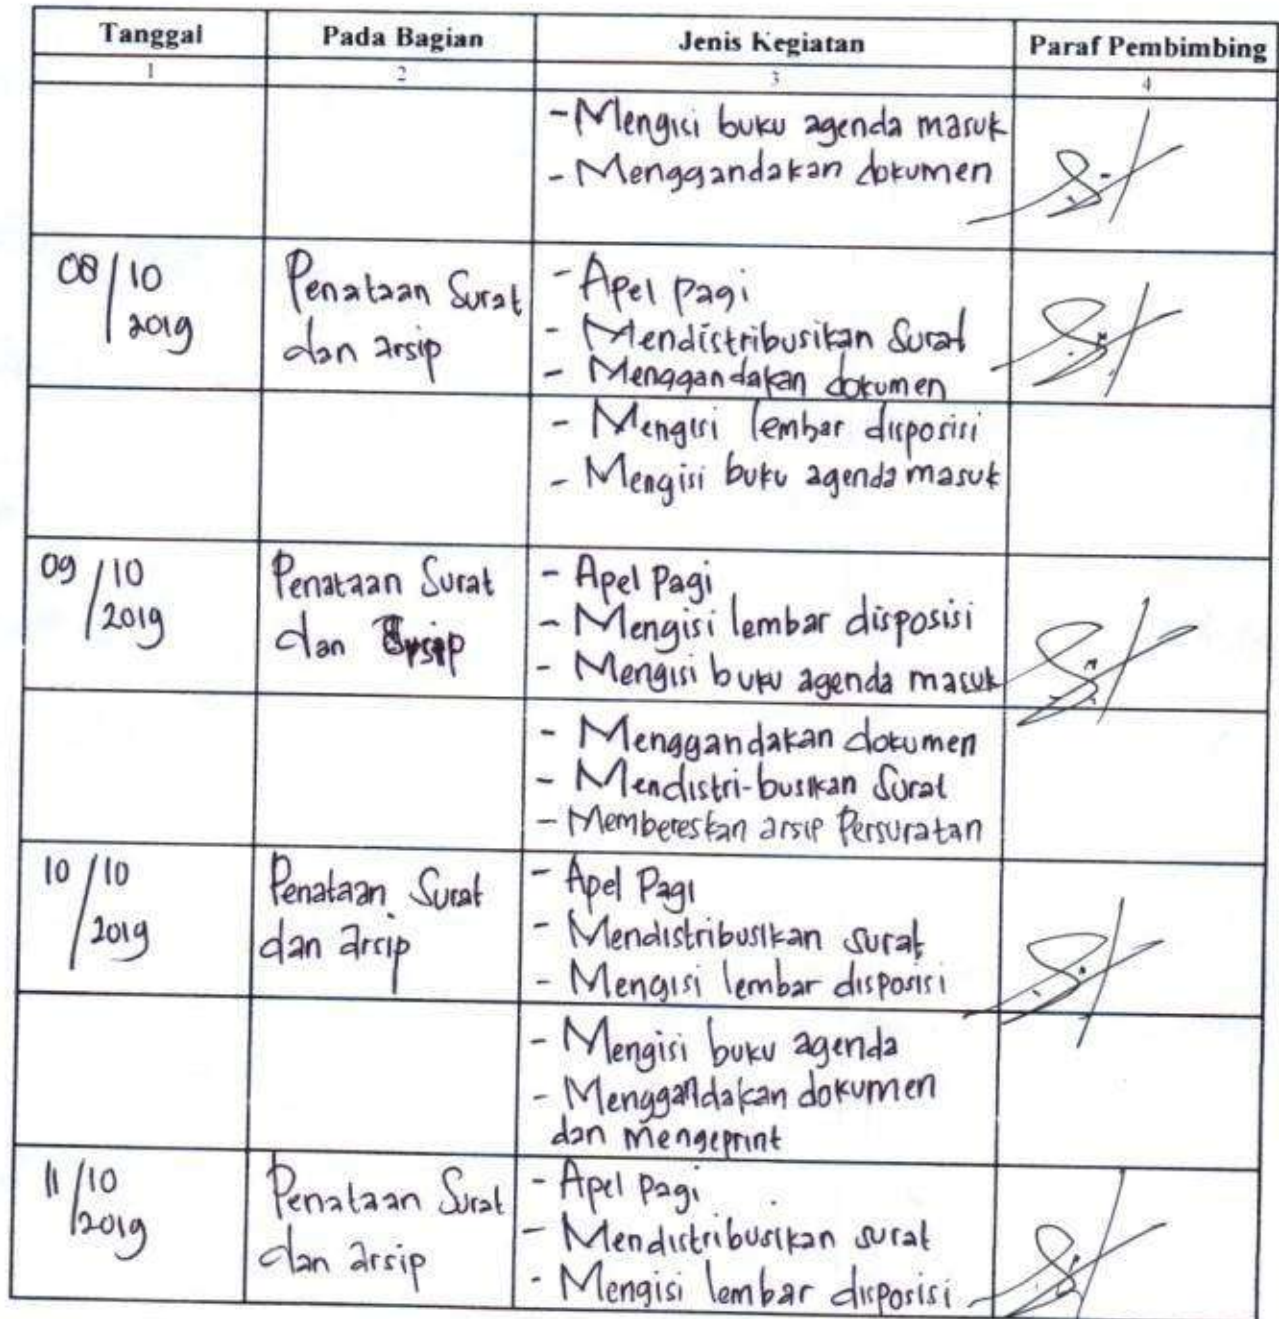 Tanggal Pada Bagian Jenis Kegiatan Paraf Pembimbing
1 2 3 4
- Mengisi buku agenda masuk
- Menggandakan dokumen
08/10 2019
Penataan Surat
dan arsip
- Apel pagi
- Mendistribusikan Surat
- Menggandakan dokumen
- Mengisi lembar disposisi
- Mengisi buku agenda masuk
09/10 2019
Penataan Surat
dan arsip
- Apel Pagi
- Mengisi lembar disposisi
- Mengisi buku agenda masuk
- Menggandakan dokumen
- Mendistri-busikan Surat
- Membereskan arsip Persuratan
10/10 2019
Penataan Surat
dan arsip
- Apel Pagi
- Mendistribusikan surat
- Mengisi lembar disposisi
- Mengisi buku agenda
- Menggandakan dokumen
dan mengeprint
11/10 2019
Penataan Surat
dan arsip
- Apel pagi
- Mendistribusikan surat
- Mengisi lembar disposisi